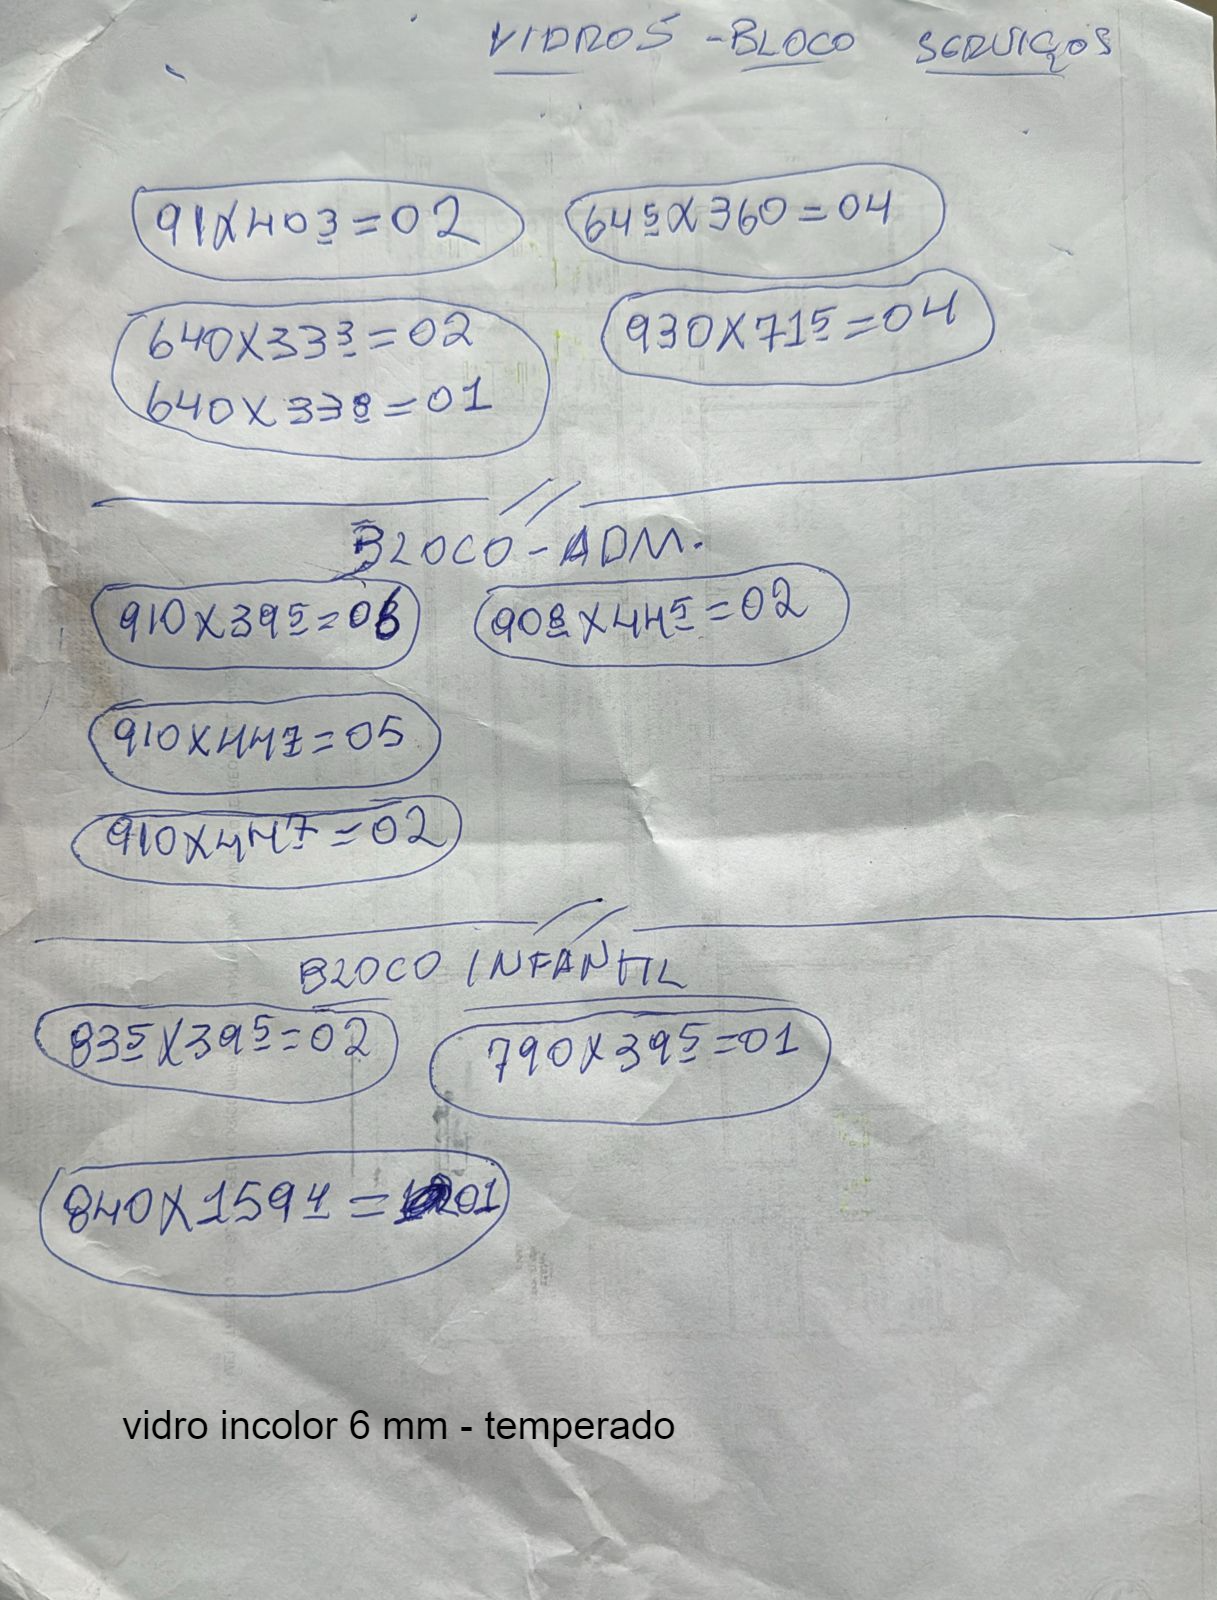 VIDROS - BLOCO SERVIÇOS
91X403=02 645X360=04
640X333=02 930X715=04
640X338=01
BLOCO-ADM.
910X395=06 908X445=02
910X447=05
910X447=02
BLOCO INFANTIL
835X395=02 790X395=01
840X1591=01
vidro incolor 6 mm - temperado